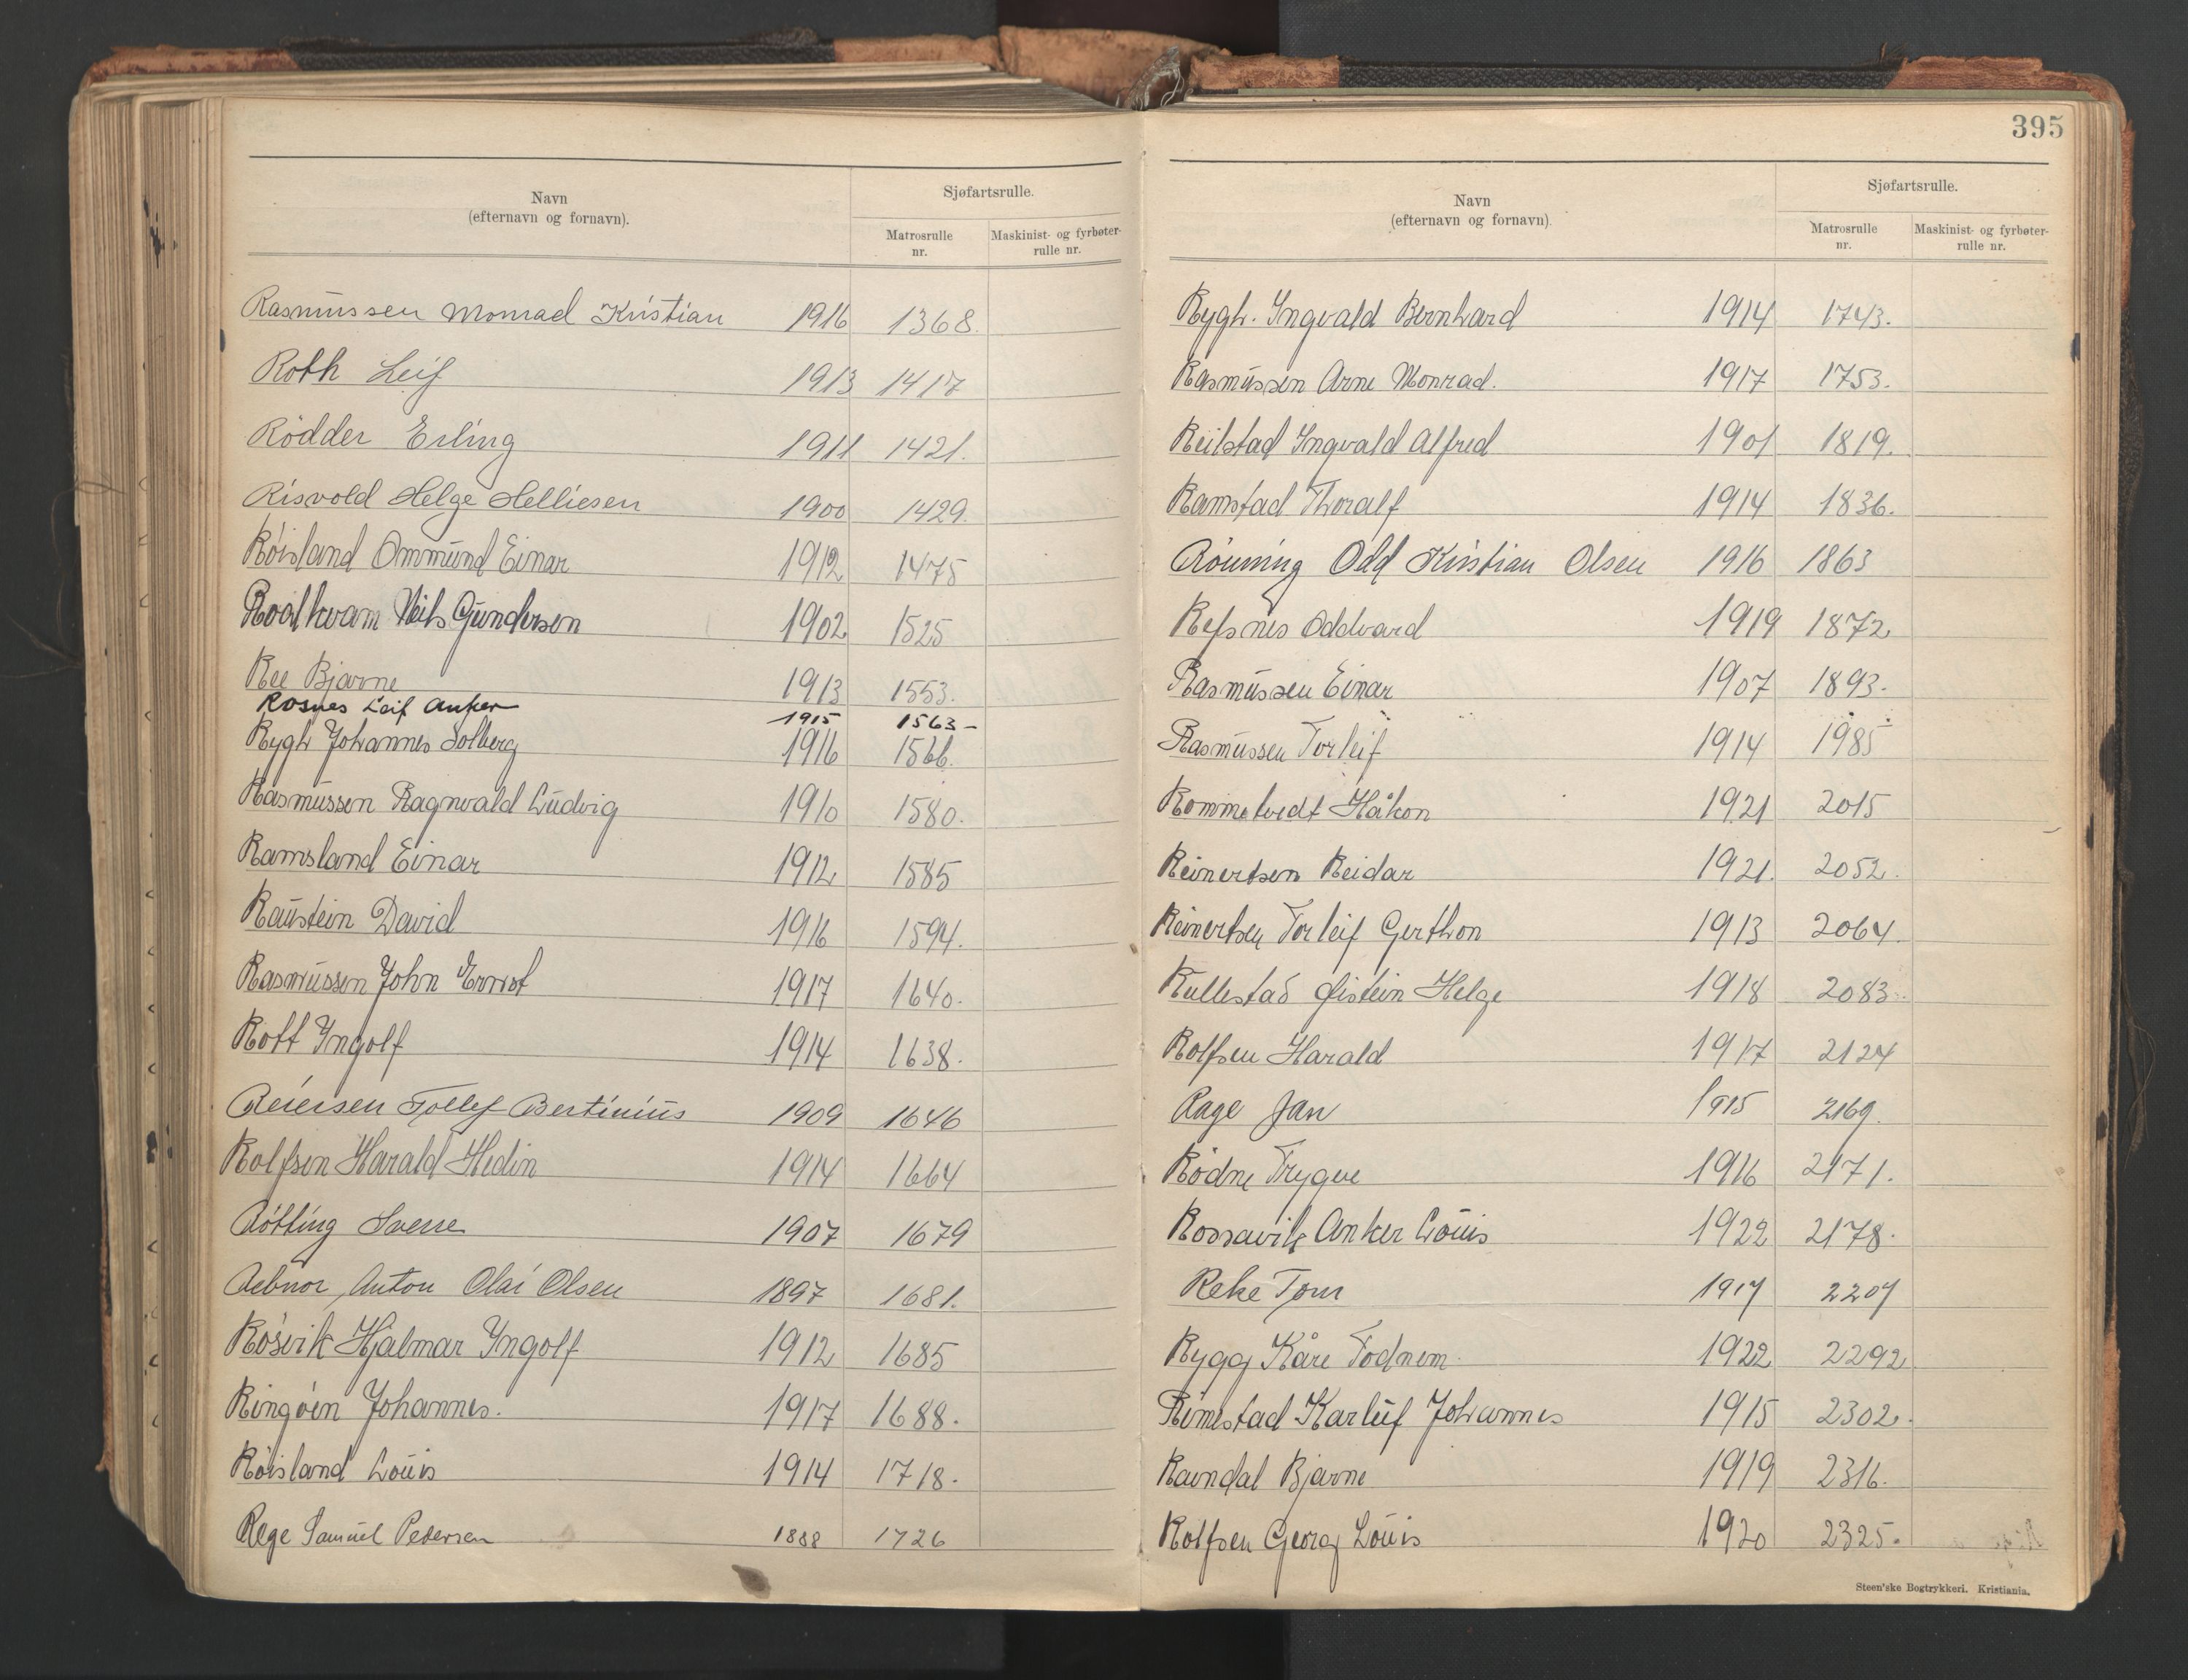 Navn
(efternavn og fornavn).
Sjøfartsrulle.
Matrosrulle
nr.
Maskinist- og fyrbøter-
rulle nr.
Rasmussen Monrad Kristian 1916 1368.
Roth Leif 1913 1417
Rødder Erling 1911 1421.
Risvold Helge Helliesen 1900 1429.
Røisland Ommund Einar 1912 1475
Roalkvam Nils Gundersen 1902 1525
Ree Bjarne 1913 1553.
Rosnes Leif Anker 1915 1563-
Rygh Johannes Solberg 1916 1566.
Rasmussen Ragnvald Ludvig 1910 1580.
Ramsland Einar 1912 1585
Raustein David 1916 1594.
Rasmussen John Ernst 1917 1640.
Rott Ingolf 1914 1638.
Reiersen Tollef Bertinius 1909 1646
Rolfsen Harald Hedin 1914 1664
Røtting Sverre 1907 1679
Rebnor, Anton Olai Olsen 1897 1681.
Røsvik Hjalmar Yngolf 1912 1685
Ringøen Johannes. 1917 1688.
Røisland Louis 1914 1718.
Rege Samuel Pedersen 1888 1726
395
Navn
(efternavn og fornavn).
Sjøfartsrulle.
Matrosrulle
nr.
Maskinist- og fyrbøter-
rulle nr.
Rygh. Yngvald Bernhard 1914 1743.
Rasmussen Arne Monrad. 1917 1753.
Reilstad Yngvald Alfred 1901 1819.
Ramstad Thoralf 1914 1836.
Rønning Odd Kristian Olsen 1916 1863
Refsnes Oddvard 1919 1872
Rasmussen Einar 1907 1893.
Rasmussen Torleif 1914 1985
Rommetvedt Håkon 1921 2015
Reinertsen Reidar 1921. 2052.
Reinertsen Torleif Gerthon 1913 2064.
Rullestad Øistein Helge 1918 2083.
Rolfsen Harald 1917 2124
Rage Jan 1915 2169.
Rødne Trygve 1916 2171.
Rossavik Anker Louis 1922 2178.
Reke Tom 1917 2207
Rygg Kåre Fodnem 1922 2292
Rimestad Karleif Johannes 1915 2302.
Ravndal Bjarne 1919 2316.
Rolfsen Georg Louis 1920 2325.
Steen'ske Bogtrykkeri. Kristiania.